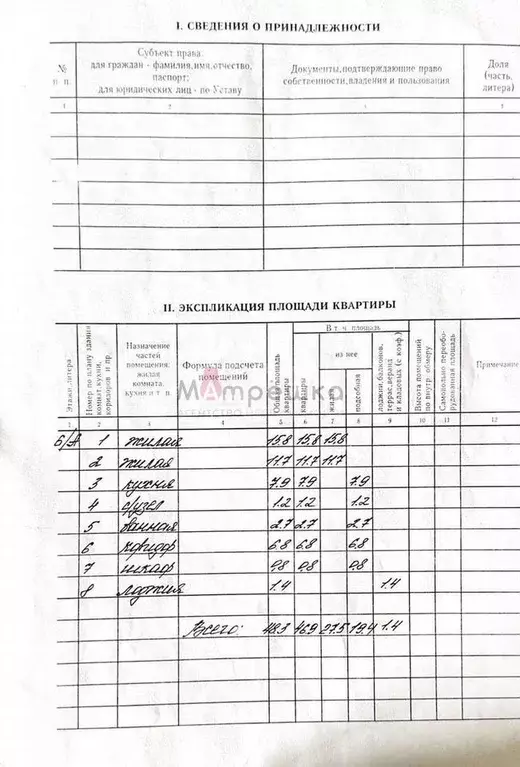 I. СВЕДЕНИЯ О ПРИНАДЛЕЖНОСТИ
№ п. п.
Субъект права: для граждан - фамилия, имя, отчество, паспорт; для юридических лиц - по Уставу
Документы, подтверждающие право собственности, владения и пользования
Доля (часть, литера)
1 2 3 4
II. ЭКСПЛИКАЦИЯ ПЛОЩАДИ КВАРТИРЫ
Этажи литера
Номер по плану здания комнат, кухни, коридоров и пр.
Назначение частей помещения: жилая комната, кухня и т п
Формула подсчета помещений
Общая площадь квартиры
В т. ч. площадь
квартиры
из нее
жилая
подсобная
лоджии, балконов, террас, веранд и кладовых (с коэф.)
Высота помещений по внутр. обмеру
Самовольно переоборудованная площадь
Примечание
МАтрёшка
1 2 3 4 5 6 7 8 9 10 11 12
6/А 1 жилая 15.8 15.8 15.8
2 жилая 11.7 11.7 11.7
3 кухня 7.9 7.9 7.9
4 с/узел 1.2 1.2 1.2
5 ванная 2.7 2.7 2.7
6 коридор 6.8 6.8 6.8
7 шкаф 0.8 0.8 0.8
8 лоджия 1.4 1.4
Всего: 48.3 46.9 27.5 19.4 1.4